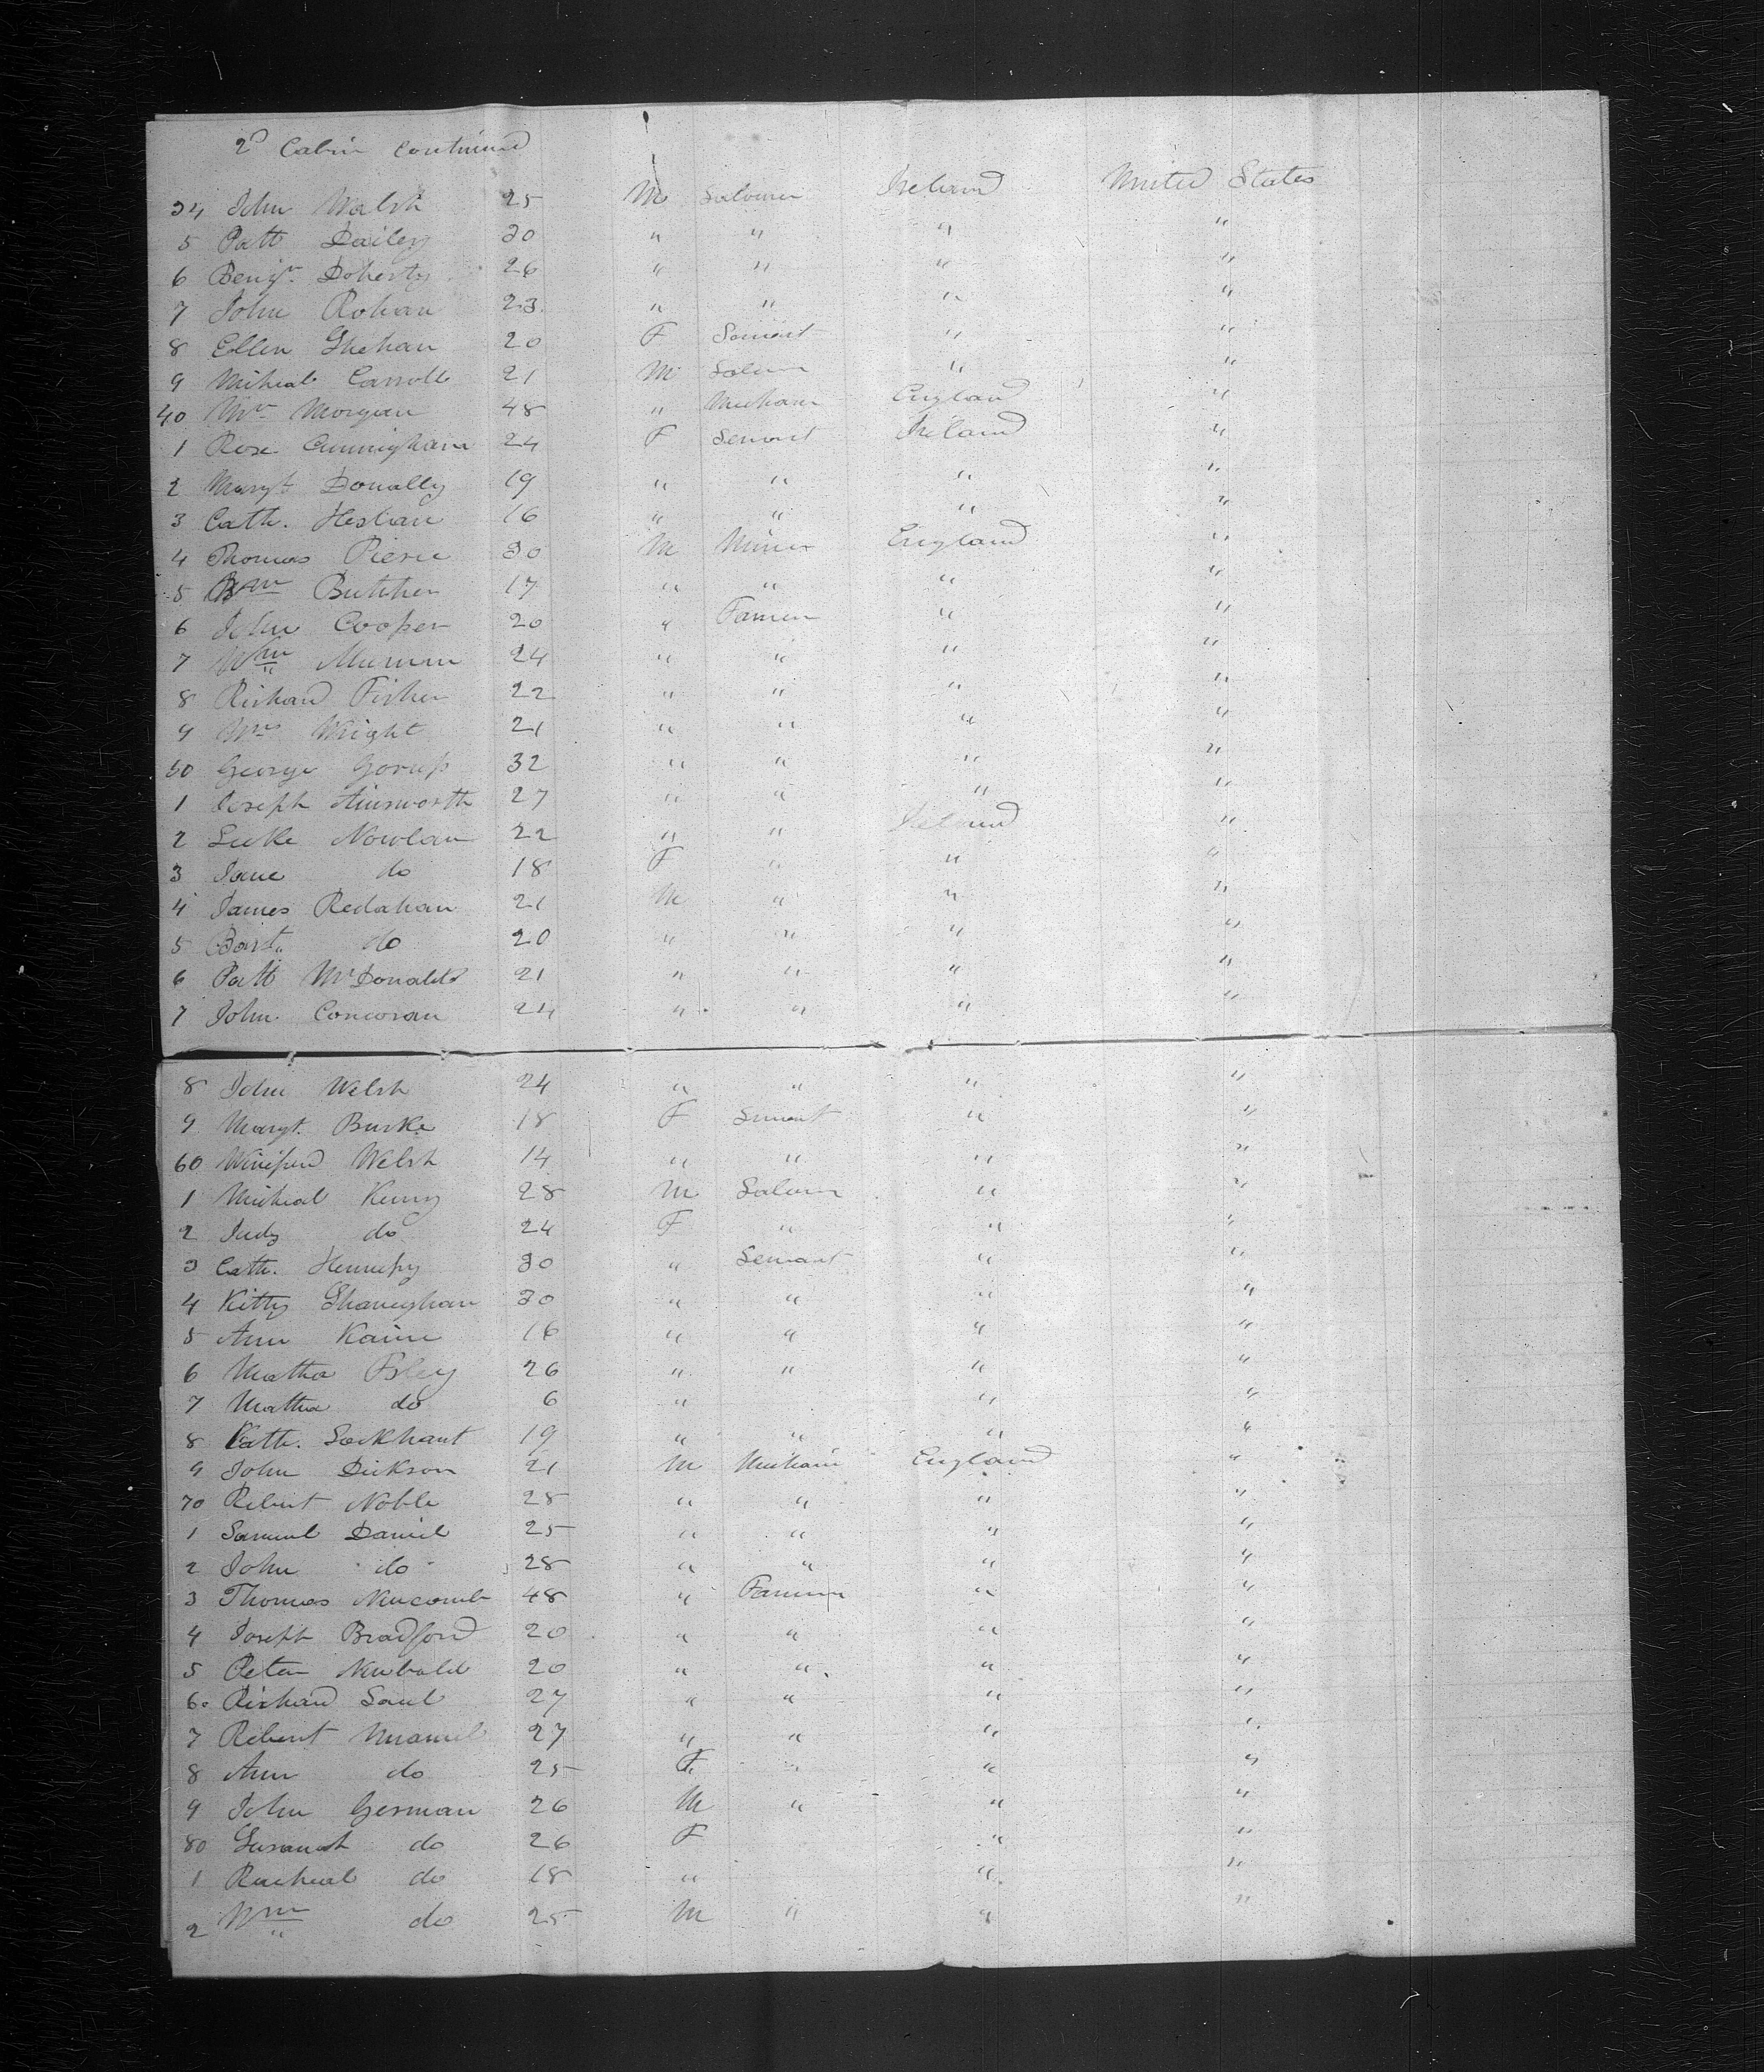 2D Cabin Continued
34 John Walsh 25 M Labourer Ireland United States
5 Patt Dailey 30 " " " "
6 Benjn. Doherty 26 " " " "
7 John Rohan 23 " " " "
8 Ellen Shehan 20 F Servant " "
9 Micheal Carroll 21 M Labourer " "
40 Wm Morgan 48 " Mechanic England "
1 Rose Cunningham 24 F Servant Ireland "
2 Margt Donally 19 " " " "
3 Cath. Heslian 16 " " " "
4 Thomas Pierce 30 M Miner England "
5 Wm Butcher 17 " " " "
6 John Cooper 20 " Farmer " "
7 Wm 24 " " " "
8 Richard Fisher 22 " " " "
9 Wm Wright 21 " " " "
50 George 32 " " " "
1 Joseph Ainsworth 27 " " " "
2 Luke Nowlan 22 " " Ireland "
3 Jane do 18 F " " "
4 James Redahan 21 M " " "
5 Bart. do 20 " " " "
6 Patt McDonald 21 " " " "
7 John Corcoran 24 " " " "
8 John Welsh 24 " " " "
9 Margt. Burke 18 F Servant " "
60 Winifred Welsh 14 " " " "
1 Micheal Kenny 28 M Labourer " "
2 Judy do 24 F " " "
3 Cath. Hennesy 30 " Servant " "
4 Kitty Shaneghan 30 " " " "
5 Ann Kaine 16 " " " "
6 Matha 26 " " " "
7 Matha do 6 " " "
8 Cath. Lockhart 19 " " " "
9 John Dickson 21 M Mechanic England "
70 Robert Noble 28 " " " "
1 Samuel Daniel 25 " " " "
2 John do 28 " " " "
3 Thomas Newcomb 48 " Farmer " "
4 Joseph Bradford 20 " " " "
5 Peter Newbold 20 " " " "
6 Richard Saul 27 " " " "
7 Robert 27 " " " "
8 Ann do 25 F " " "
9 John German 26 M " " "
80 Susanah do 26 F " "
1 Racheal do 18 " " "
2 Wm do 25 M " " "